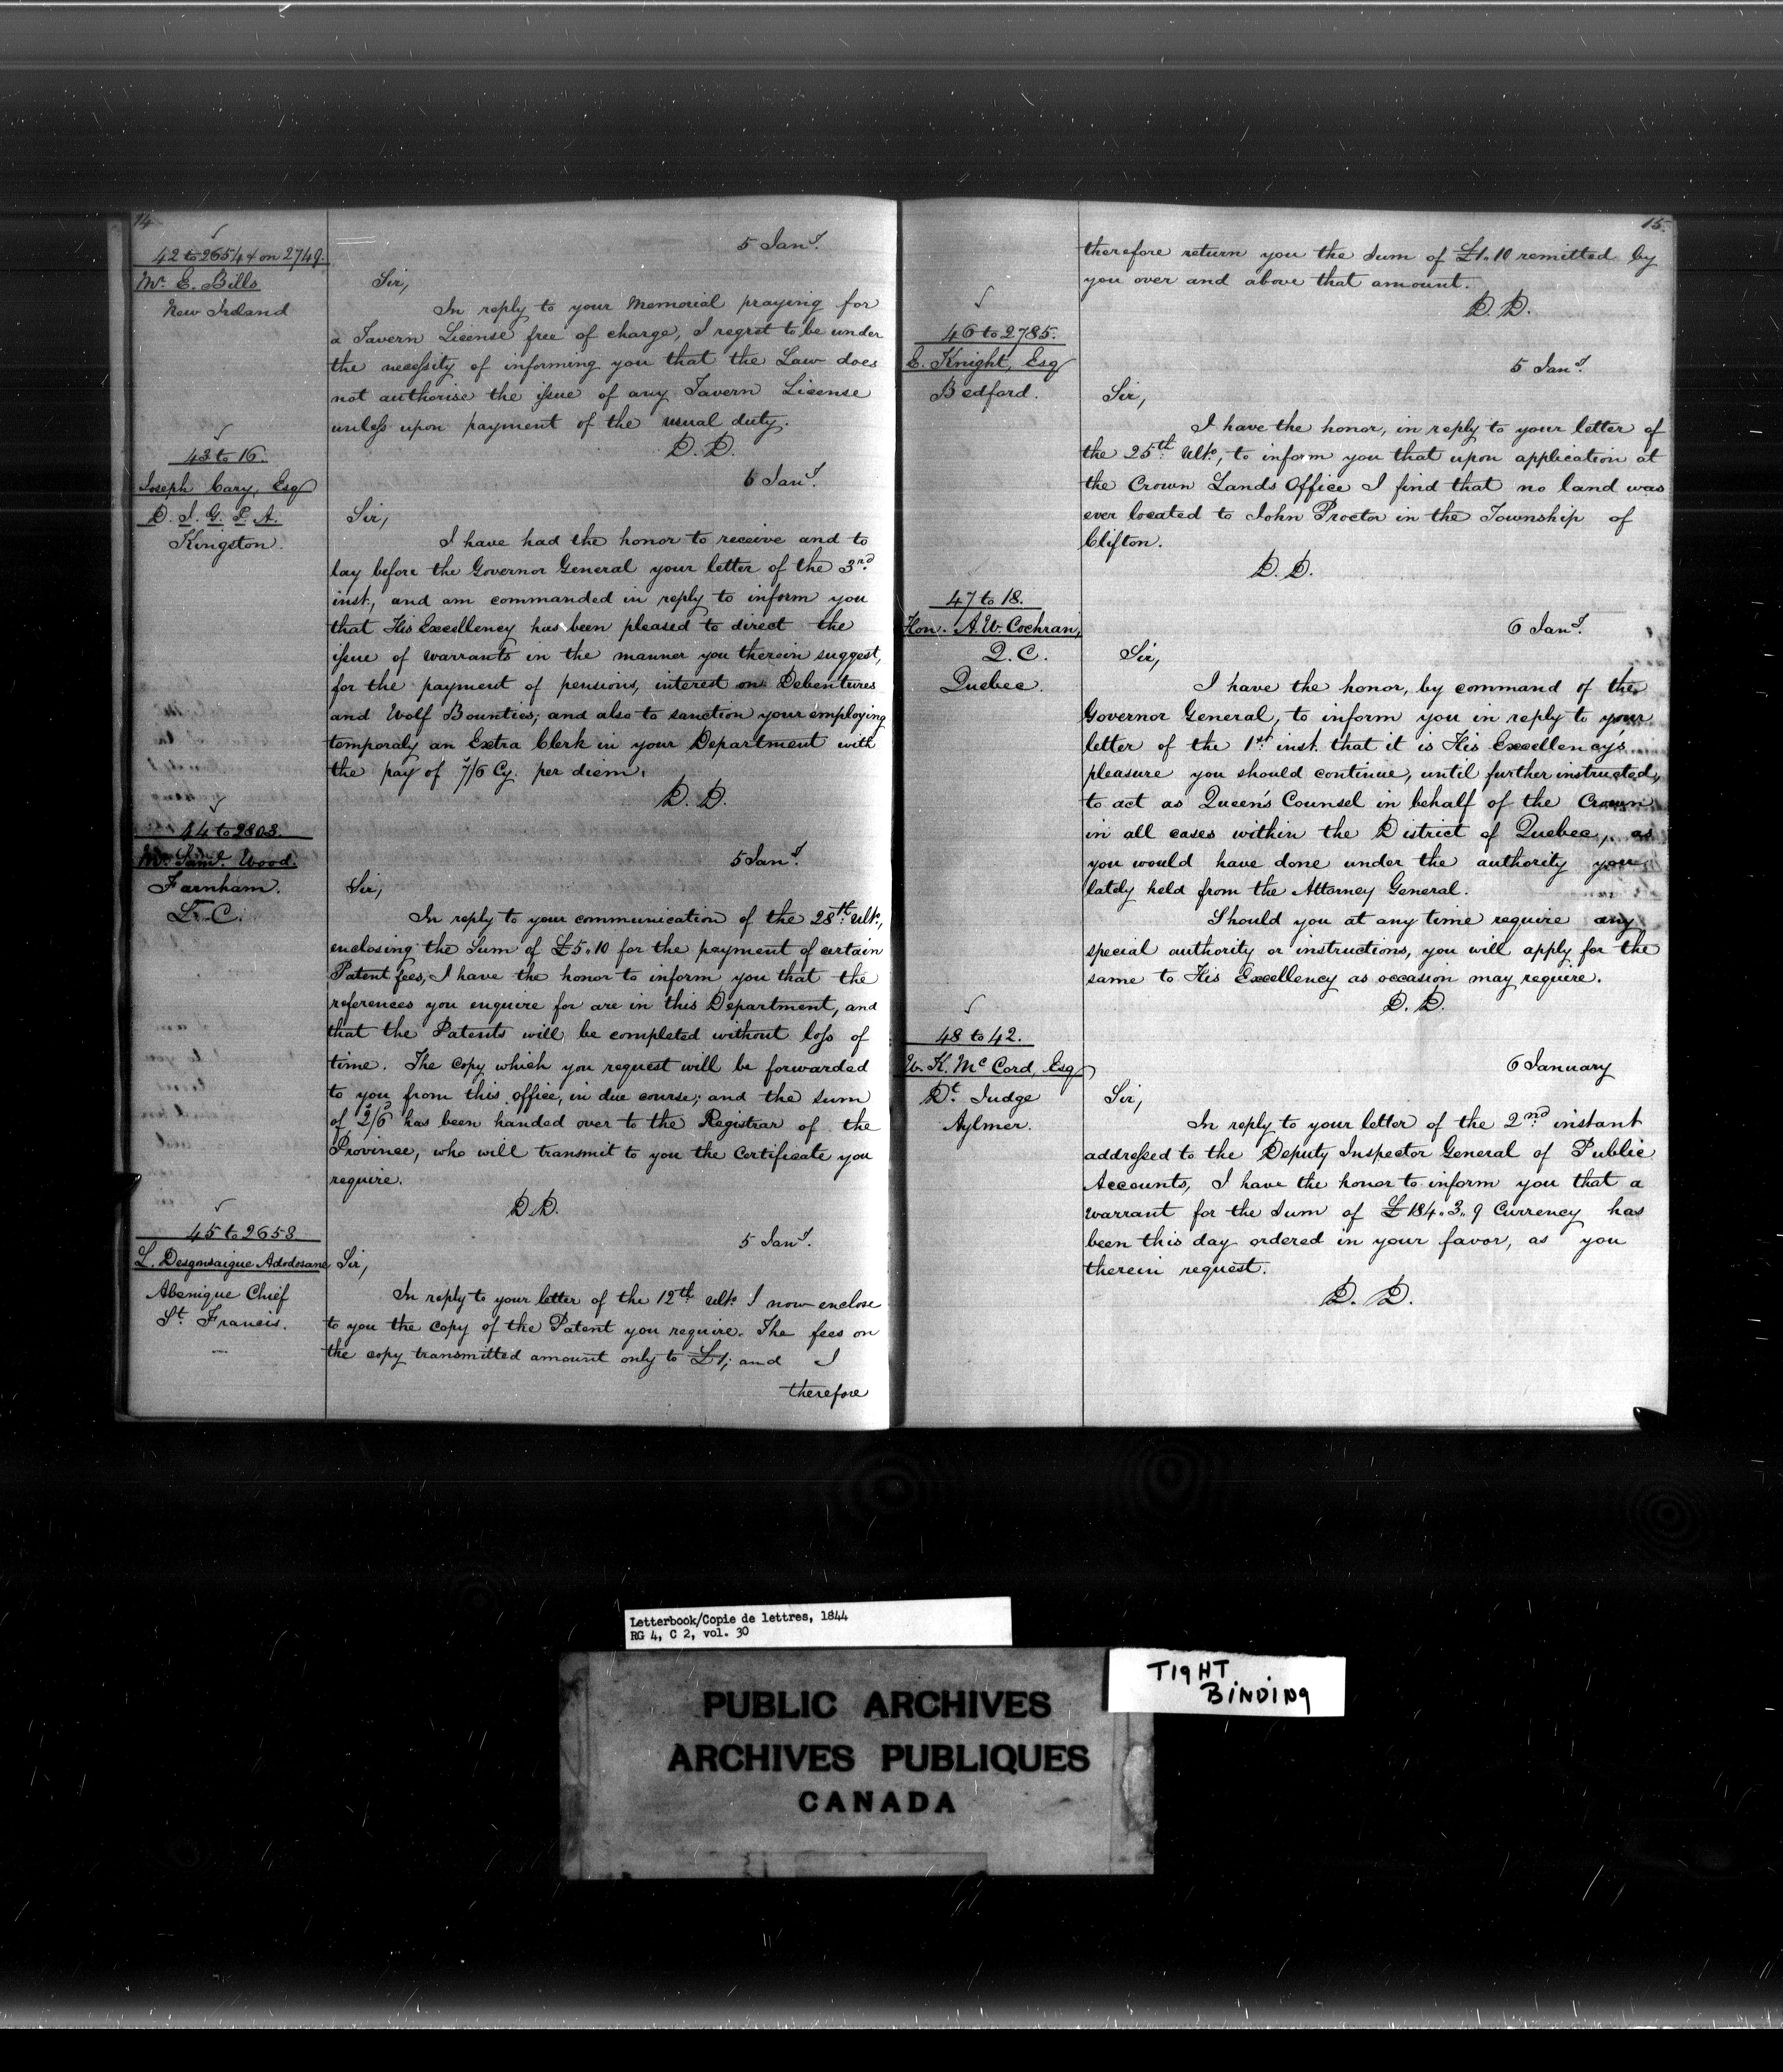 14
42 to 2654 & on 2749.
Mr. E. Bills
New Ireland
5 Jany.
Sir,
In reply to your Memorial praying for
a Tavern License free of charge, I regret to be under
the necessity of informing you that the Law does
not authorise the issue of any Tavern License
unless upon payment of the usual duty.
D. D.
43 to 16.
Joseph Cary, Esq
D. I. G. P. A.
Kingston.
6 Jany.
Sir,
I have had the honor to receive and to
lay before the Governor General your letter of the 3rd
inst., and am commanded in reply to inform you
that His Excellency has been pleased to direct the
issue of warrants in the manner you therein suggest,
for the payment of pensions, interest on Debentures
and Wolf Bounties; and also to sanction your employing
temporaly an Extra Clerk in your Department with
the pay of 7/6 Cy. per diem.
D. D.
44 to 2803.
Mr. Wood.
Farnham.
L. C.
5 Jany.
Sir,
In reply to your communication of the 28th ulto,
enclosing the Sum of £5.10 for the payment of certain
Patent fees, I have the honor to inform you that the
references you enquire for are in this Department, and
that the Patents will be completed without loss of
time. The copy which you request will be forwarded
to you from this office, in due course; and the sum
of 2/6 has been handed over to the Registrar of the
Province, who will transmit to you the Certificate you
require.
D. D.
45 to 2653
L. Desgonsaigue Adodosane
Abenique Chief
St. Francis.
5 Jany.
Sir,
In reply to your letter of the 12th ulto. I now enclose
to you the copy of the Patent you require. The fees on
the copy transmitted amount only to £1; and I
therefore
15.
therefore return you the Sum of £1.10 remitted by
you over and above that amount.
D. D.
46 to 2785.
E. Knight, Esq
Bedford.
5 Jany.
Sir,
I have the honor, in reply to your letter of
the 25th. ulto, to inform you that upon application at
the Crown Lands Office I find that no land was
ever located to John Proctor in the Township of
Clifton.
D. D.
47 to 18.
Hon. A. W. Cochran,
Q. C.
Quebec.
6 Jany.
Sir,
I have the honor, by command of the
Governor General, to inform you in reply to your
letter of the 1st inst. that it is His Excellency's
pleasure you should continue, until further instructed,
to act as Queen's Counsel in behalf of the Crown
in all cases within the District of Quebec, as
you would have done under the authority you
lately held from the Attorney General.
Should you at any time require any
special authority or instructions, you will apply for the
same to His Excellency as occasion may require.
D. D.
48 to 42.
W. K. McCord, Esq
Dt. Judge
Aylmer.
6 January
Sir,
In reply to your letter of the 2nd instant
addressed to the Deputy Inspector General of Public
Accounts, I have the honor to inform you that a
warrant for the Sum of £184.3.9 Currency has
been this day ordered in your favor, as you
therein request.
D. D.
Letterbook/Copie de lettres, 1844
RG 4, C 2, vol. 30
TIGHT
BINDING
PUBLIC ARCHIVES
ARCHIVES PUBLIQUES
CANADA